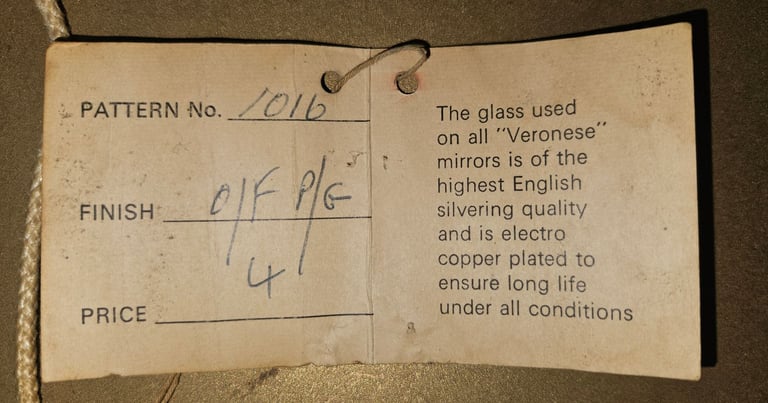 PATTERN No. 1016
FINISH O/F P/G
4
PRICE
The glass used
on all "Veronese"
mirrors is of the
highest English
silvering quality
and is electro
copper plated to
ensure long life
under all conditions